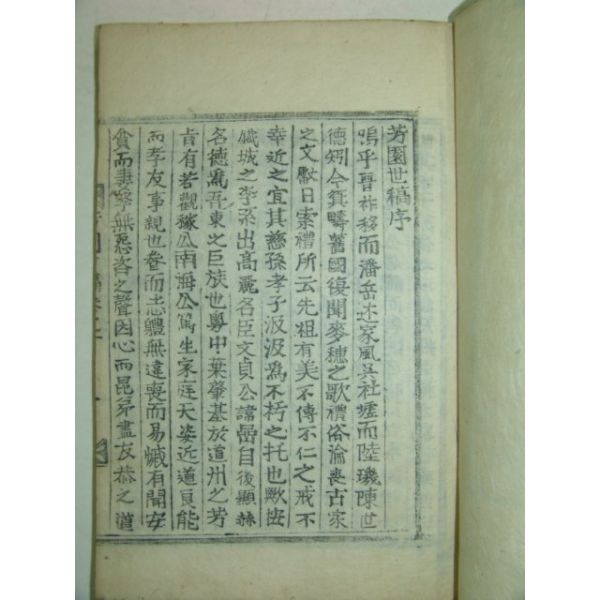 芳園世稿序
嗚乎晋祚移而潘岳述家風吳社墟而陸璣陳世
德矧今箕疇舊國復聞麥穗之歌禮俗淪喪古家
之文獻日索禮所云先祖有美不傳不仁之戒不
幸近之宜其慈孫孝子汲汲爲不朽之托也歟按
鐵城之李系出高麗名臣文貞公諱嵒自後顯赫
各德爲吾東之巨族世粤中葉肇基於道州之芳
旨有若觀稼公南海公篤生家庭天姿近道貝能
而孝友事親也耆而志體無違喪而易慽有聞安
貧而妻孥無怨咨之聲因心而昆弟盡友恭之道